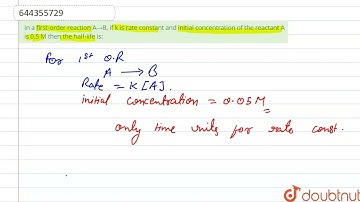 644355729
In a first-order reaction A→B, if k is rate constant and initial concentration of the reactant A
is 0.5 M then the half-life is:
For 1st O.R
A → B
Rate = K [A].
initial concentration = 0.05 M
only time units for rate const.
doubtnut